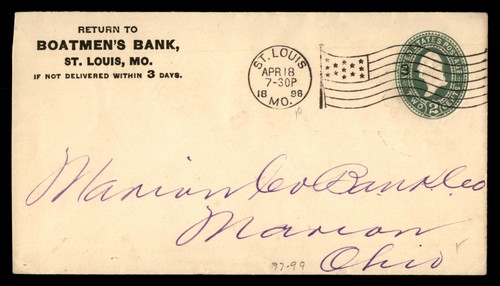 RETURN TO
BOATMEN'S BANK,
ST. LOUIS, MO.
IF NOT DELIVERED WITHIN 3 DAYS.
ST. LOUIS
APR 18
7-30P
18 98
MO.
U.S.
UNITED STATES POSTAGE
TWO CENTS
2
Marion Co Bank Co
Marion
Ohio
97-99